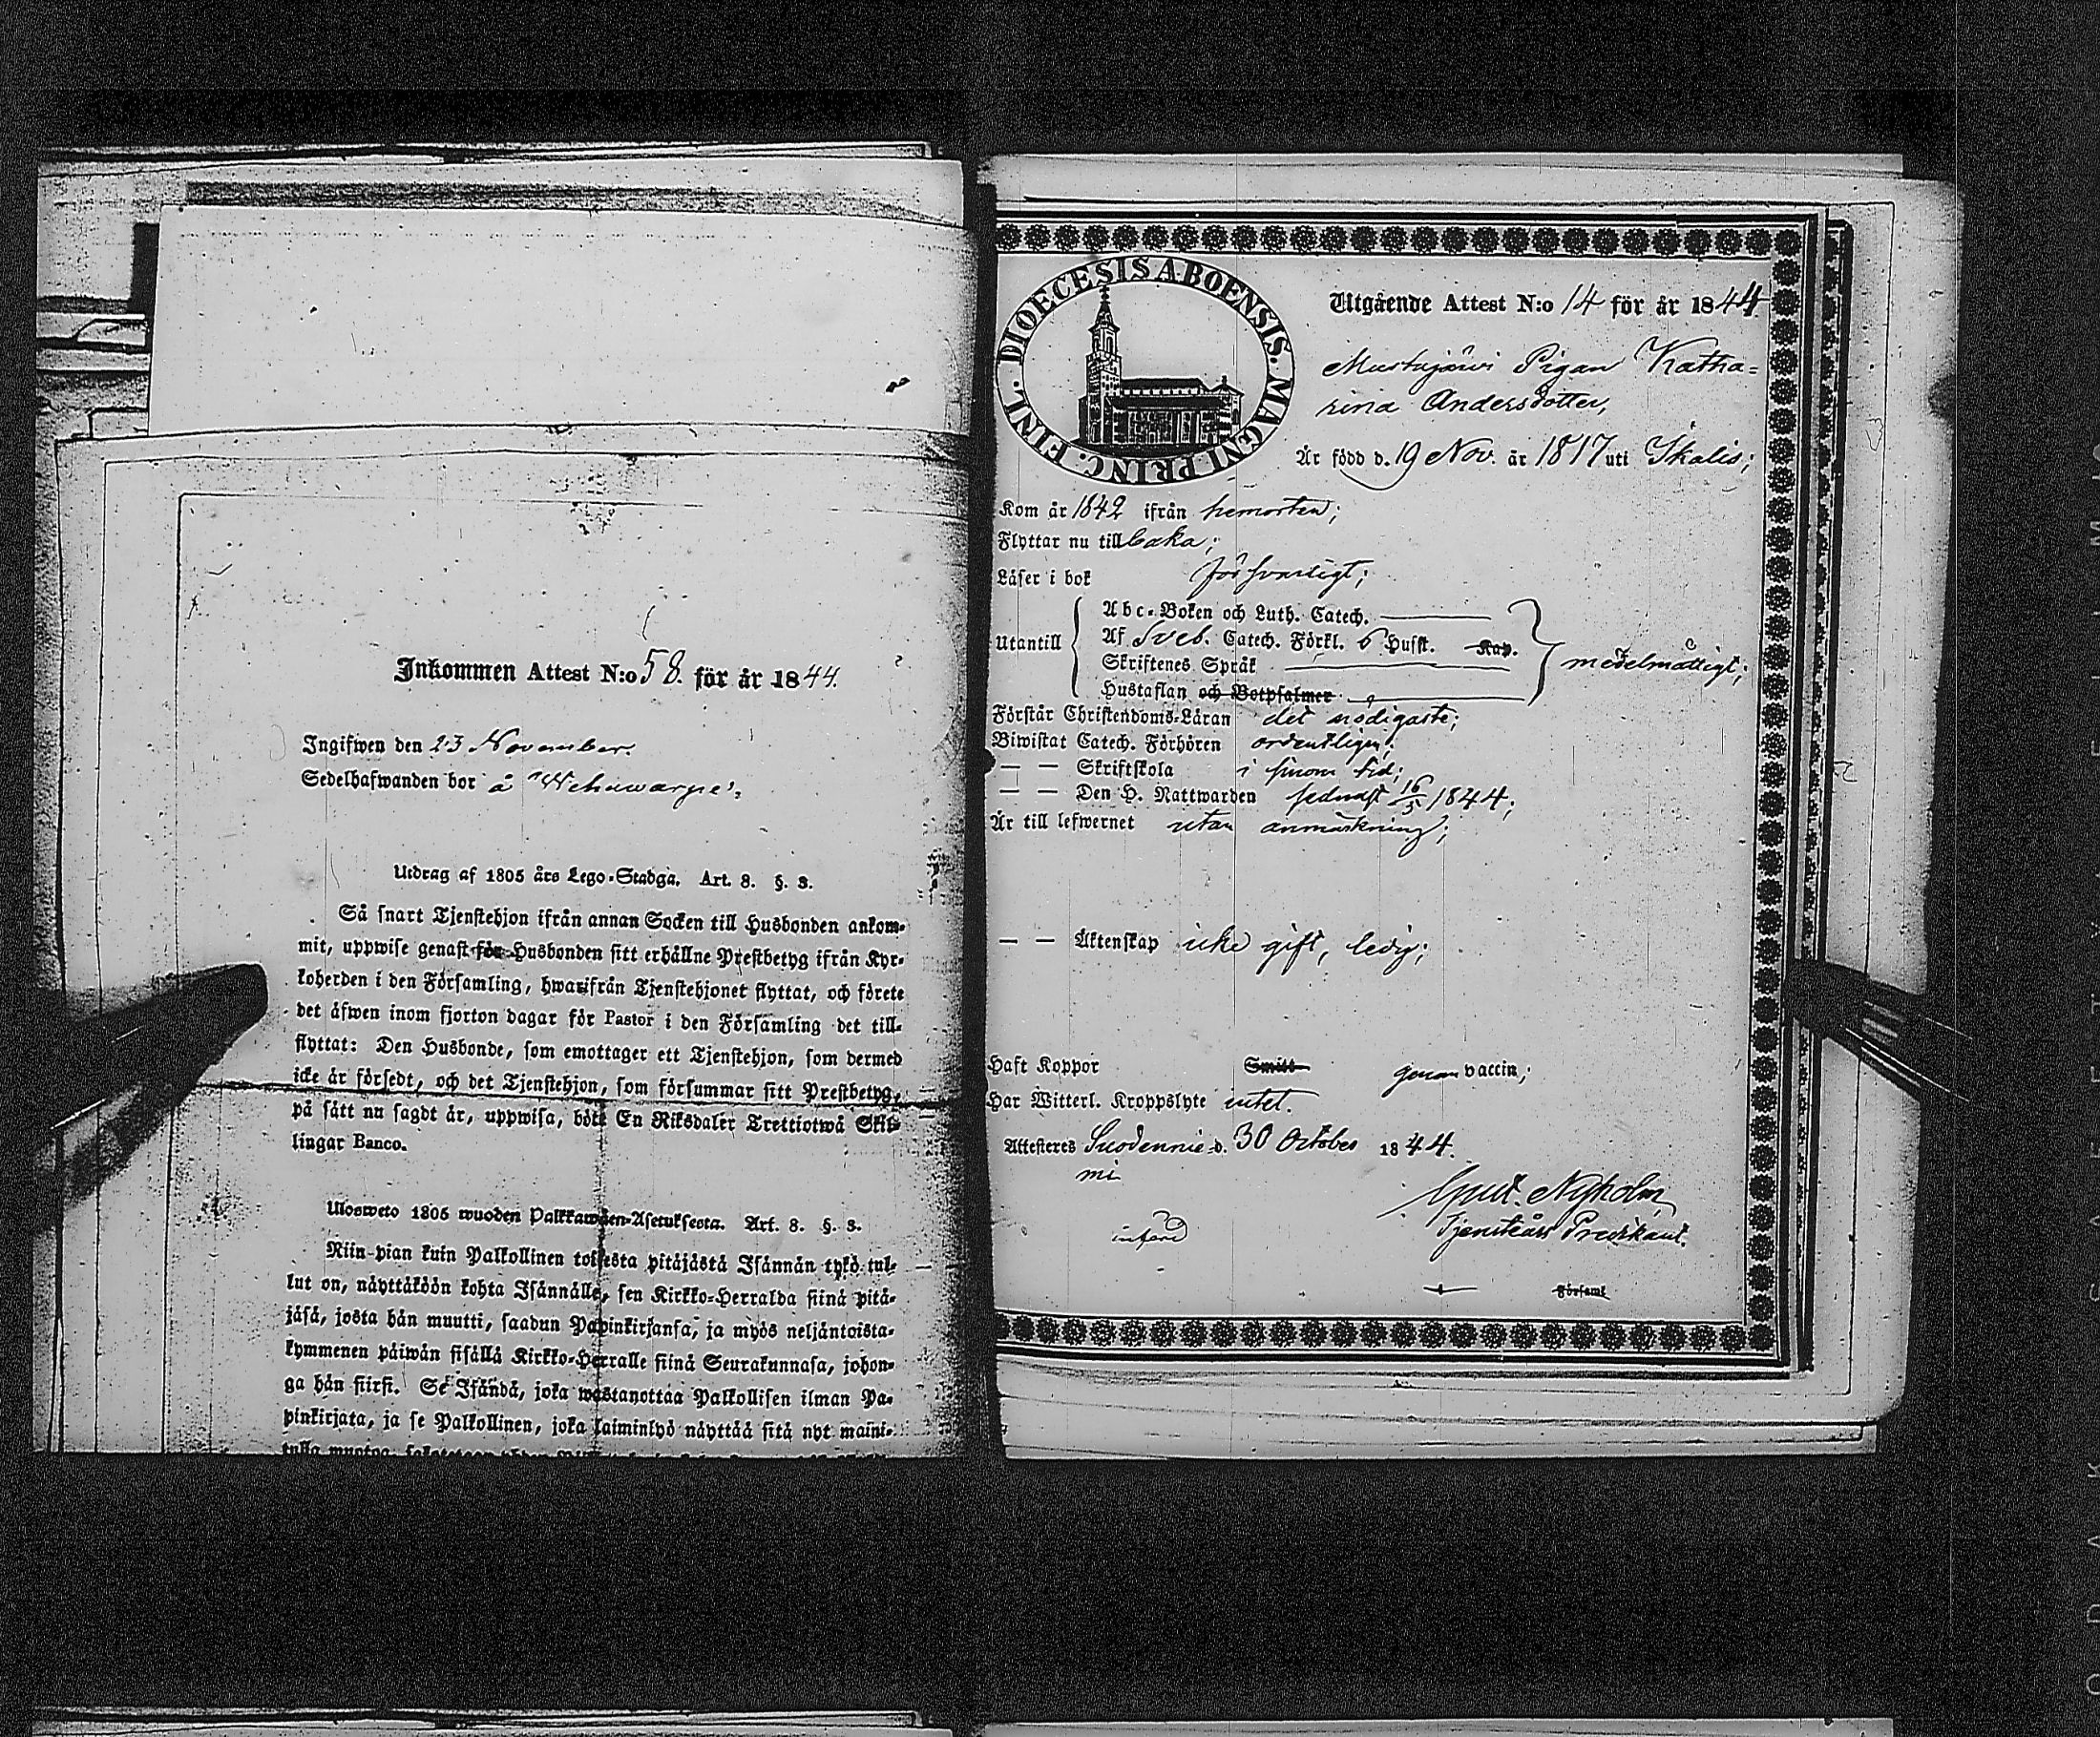 Inkommen Attest N:o 58. för år 1844.
Ingifwen den 23 November.
Sedelhafwanden bor å
Utdrag af 1805 års Lego-Stadga. Art. 8. §. 3.
Så snart Tjenstehjon ifrån annan Socken till Husbonden ankom-
mit, uppwise genast för Husbonden sitt erhållne Prestbetyg ifrån Kyr-
koherden i den Församling, hwarifrån Tjenstehjonet flyttat, och förete
det äfwen inom fjorton dagar för Pastor i den Församling det till-
flyttat: Den Husbonde, som emottager ett Tjenstehjon, som dermed
icke är försedt, och det Tjenstehjon, som försummar sitt Prestbetyg,
på sätt nu sagdt är, uppwisa, böte En Riksdaler Trettiotwå Skil-
lingar Banco.
Ulosweto 1805 wuoden Palkkawäen-Asetuksesta. Art. 8. §. 3.
Niin pian kuin Palkollinen toisesta pitäjästä Isännän tykö tul-
lut on, näyttäköön kohta Isännälle, sen Kirkko-Herralda siinä pitä-
jäsä, josta hän muutti, saadun Papinkirjansa, ja myös neljäntoista-
kymmenen päiwän sisällä Kirkko-Herralle siinä Seurakunnasa, johon-
ga hän siirsi. Se Isändä, joka wastanottaa Palkollisen ilman Pa-
pinkirjata, ja se Palkollinen, joka laiminlyö näyttää sitä nyt maini-
DIOECESIS ABOENSIS. MAGNI PRINC. FINL.
Utgående Attest N:o 14 för år 1844
Mustajärvi Pigan Katha-
rina Andersdotter,
Är född d. 19 Nov. år 1817 uti Ikalis;
Kom år 1842 ifrån hemorten;
Flyttar nu tillbaka;
Läser i bok försvarligt;
Utantill
Abc-Boken och Luth. Catech.
Af Sveb. Catech. Förkl. 6 Hufst. Kap.
Skriftenes Språk
Hustaflan och Botpsalmer
medelmåttigt;
Förstår Christendoms-Läran det nödigaste;
Biwistat Catech. Förhören ordentligen;
— — Skriftskola i sinom tid;
— — Den H. Nattwarden sednast 16/5 1844;
Är till lefwernet utan anmärkning;
— — Äktenskap icke gift, ledig;
Haft Koppor Smitt- genom vaccin;
Har Witterl. Kroppslyte intet.
Attesteras Suodennie- d. 30 October 1844.
mi
Gust. Nyholm
Tjensteårs Predikant.
Församl